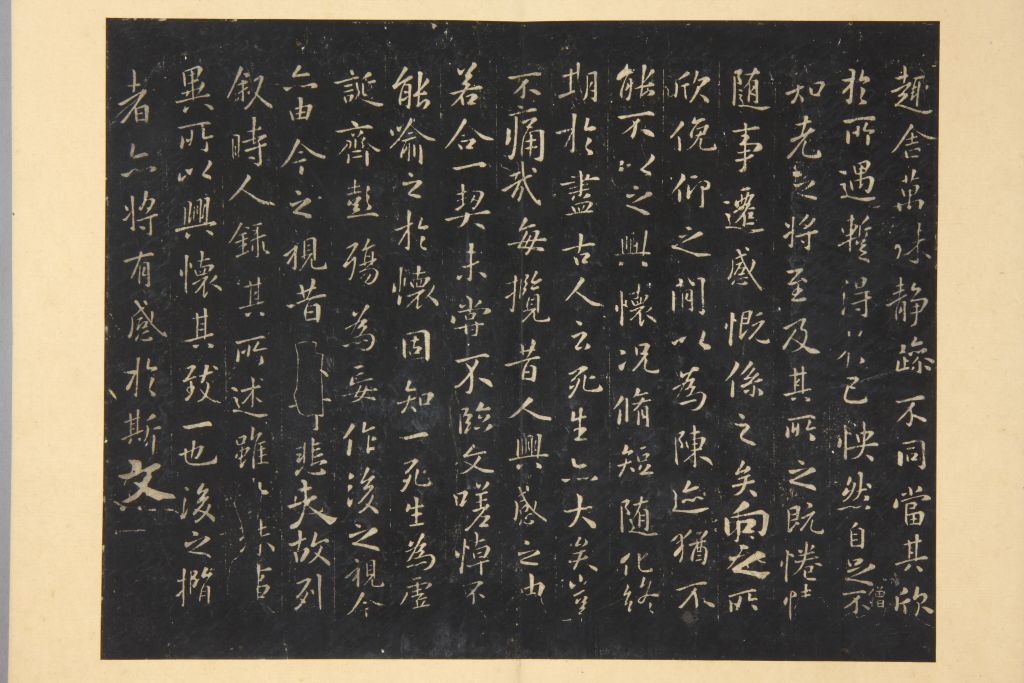 趣舍萬殊静躁不同當其欣
於所遇暫得於己怏然自足不
僧
知老之將至及其所之既惓情
随事遷感慨係之矣向之所
欣俛仰之閒以為陳迹猶不
能不以之興懷况脩短随化終
期於盡古人云死生亦大矣豈
不痛哉每攬昔人興感之由
若合一契未嘗不臨文嗟悼不
能喻之於懷固知一死生為虛
誕齊彭殤為妄作後之視今
亦由今之視昔悲夫故列
叙時人録其所述雖世殊事
異所以興懷其致一也後之攬
者亦將有感於斯文